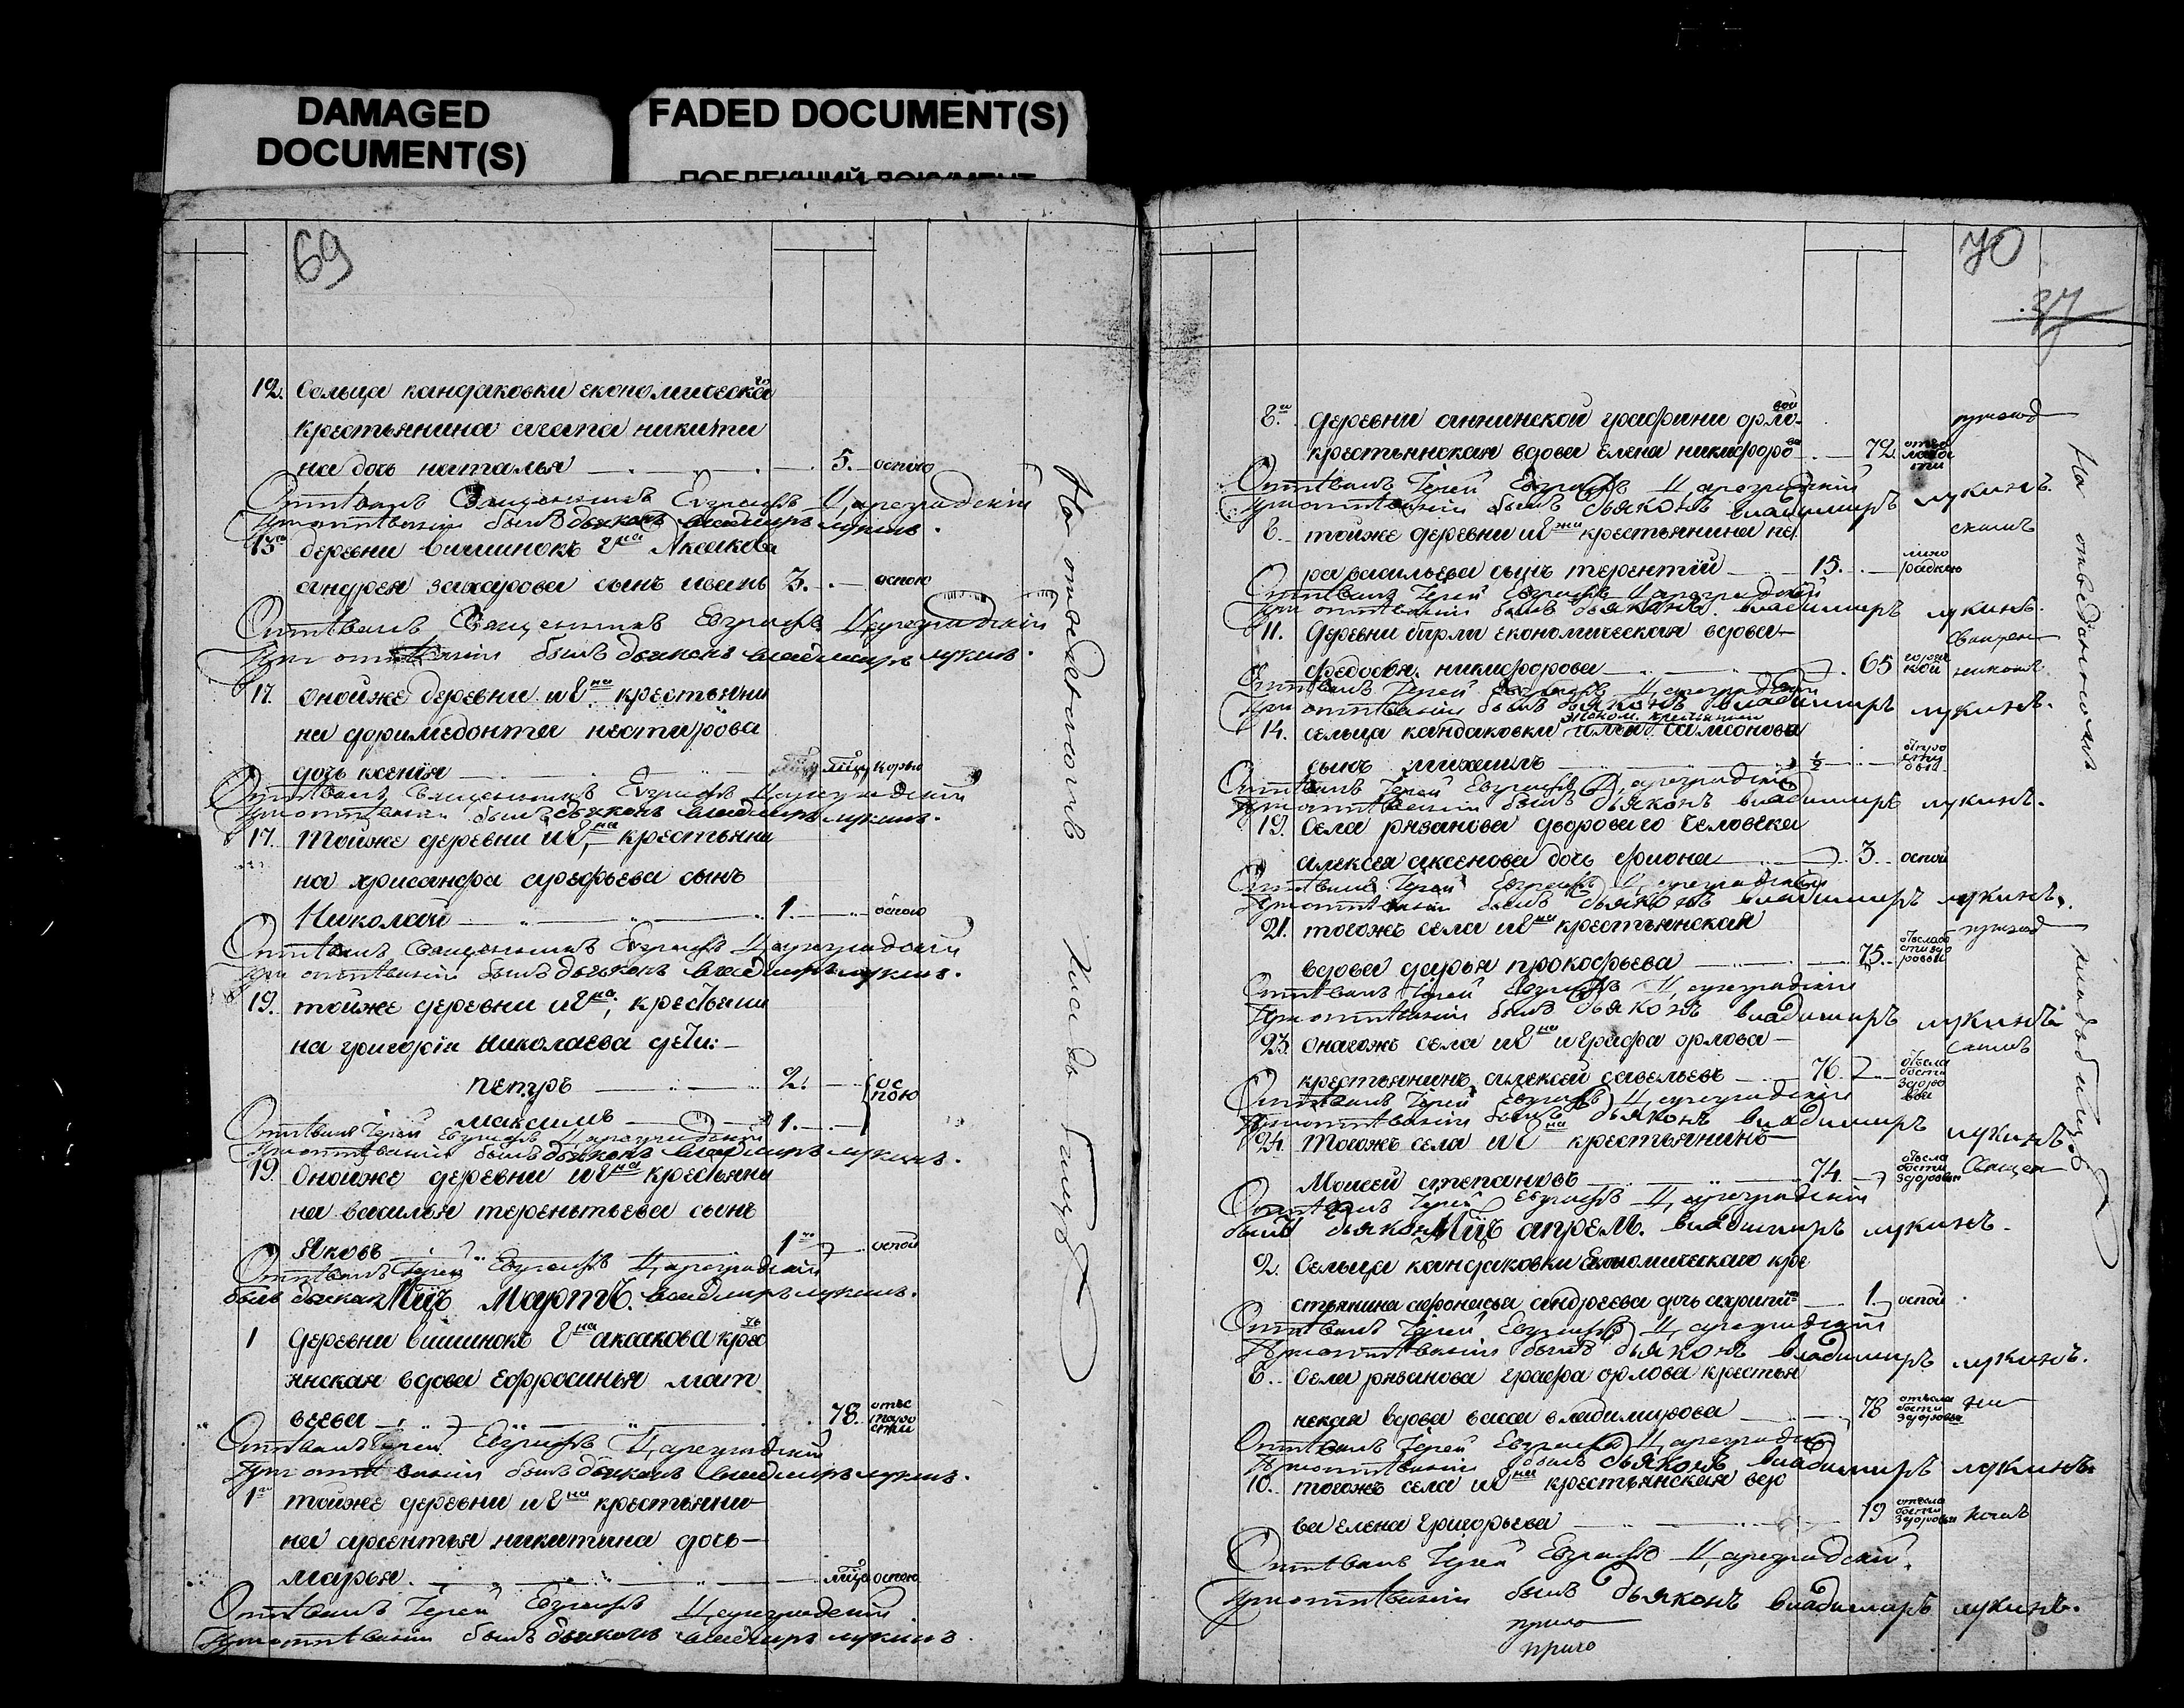 DAMAGED
DOCUMENT(S)
FADED DOCUMENT(S)
69
12. Сельца кандаковки економическаго
крестьянина агапа никити
на дочь наталья 5. оспою
Отпѣвалъ Священникъ Евграфъ Цареградскій
При отпѣваніи былъ дьяконъ владимиръ лукинъ.
13 деревни вишинокъ Г на Аксакова
андрея захарова сынъ иванъ 3. оспою
Отпѣвалъ Священникъ Евграфъ Цареградскій
При отпѣваніи былъ дьяконъ владимиръ лукинъ.
17. оной же деревни и Г на крестьяни
на фирмедонта нестирова
дочь ксенія корью
Отпѣвалъ Священникъ Евграфъ Цареградскій
При отпѣваніи былъ дьяконъ владимиръ лукинъ.
17. Той же деревни и Г на крестьяни
на хрисанфа арефьева сынъ
Николай 1. оспою
Отпѣвалъ Священникъ Евграфъ Цареградскій
При отпѣваніи былъ дьяконъ владимиръ лукинъ.
19. той же деревни и Г на, крестьяни
на григорія николаева дѣти:
петръ 2. оспою
максимъ 1.
Отпѣвалъ Іерей Евграфъ Цареградскій
При отпѣваніи былъ дьяконъ владимиръ лукинъ.
19. Оной же деревни и Г на крестьяни
на василья терентьева сынъ
Яковъ 1 оспой
Отпѣвалъ Іерей Евграфъ Цареградскій
былъ дьяконъ владимиръ лукинъ.
Мцъ Мартъ.
1 Деревни вишинокъ Г на аксакова кресть
янская вдова Ефросинья мат
вѣева 78. отъ старости
Отпѣвалъ Іерей Евграфъ Цареградскій
При отпѣваніи былъ дьяконъ владимиръ лукинъ.
1 той же деревни и Г на крестьяни
на арсентья никитина дочь
марья оспою
Отпѣвалъ Іерей Евграфъ Цареградскій
При отпѣваніи былъ дьяконъ владимиръ лукинъ.
На отведенномъ кладбищѣ
70
37
8. деревни аннинской графини орловой
крестьянская вдова Елена никифорова 72.
Отпѣвалъ Іерей Евграфъ Цареградскій
При отпѣваніи былъ дьяконъ владимиръ лукинъ.
8. той же деревни и Г жи крестьянина пе
ра васильева сынъ терентій 15. лихорадкою
Отпѣвалъ Іерей Евграфъ Цареградскій
При отпѣваніи былъ дьяконъ владимиръ лукинъ.
11. Деревни бирли економическая вдова
федосья никифорова 65 горячкой
Отпѣвалъ Іерей Евграфъ Цареградскій
При отпѣваніи былъ дьяконъ владимиръ лукинъ.
14. сельца кандаковки самсонова
сынъ михаилъ ½
Отпѣвалъ Іерей Евграфъ Цареградскій
При отпѣваніи былъ дьяконъ владимиръ лукинъ.
19. Села рязанова двороваго человека
алексея аксенова дочь фиона 3. оспой
Отпѣвалъ Іерей Евграфъ Цареградскій
При отпѣваніи былъ дьяконъ владимиръ лукинъ.
21. тогожъ села и Г на крестьянская
вдова дарья прокофьева 75.
Отпѣвалъ Іерей Евграфъ Цареградскій
При отпѣваніи былъ дьяконъ владимиръ лукинъ
23. Оногожъ села и Г на играфа орлова
крестьянинъ алексей савельевъ 76.
Отпѣвалъ Іерей Евграфъ Цареградскій
При отпѣваніи былъ дьяконъ владимиръ лукинъ.
24. Тогожъ села и Г на крестьянинъ
Моисей степановъ 74
Отпѣвалъ Іерей Евграфъ Цареградскій
былъ дьяконъ владимиръ лукинъ.
Мцъ апрель.
2. Сельца кандаковки Економическаго кре
стьянина афонасья андреева дочь 1. оспой
Отпѣвалъ Іерей Евграфъ Цареградскій
При отпѣваніи былъ дьяконъ владимиръ лукинъ.
6. Села рязанова графа орлова крестьян
нская вдова васса владимирова 78
Отпѣвалъ Іерей Евграфъ Цареградскій
При отпѣваніи былъ дьяконъ владимиръ лукинъ.
10. тогожъ села и Г на крестьянская вдо
ва елена григорьева 79
Отпѣвалъ Іерей Евграфъ Цареградскій.
При отпѣваніи былъ дьяконъ владимиръ лукинъ.
На отведенномъ кладбищѣ